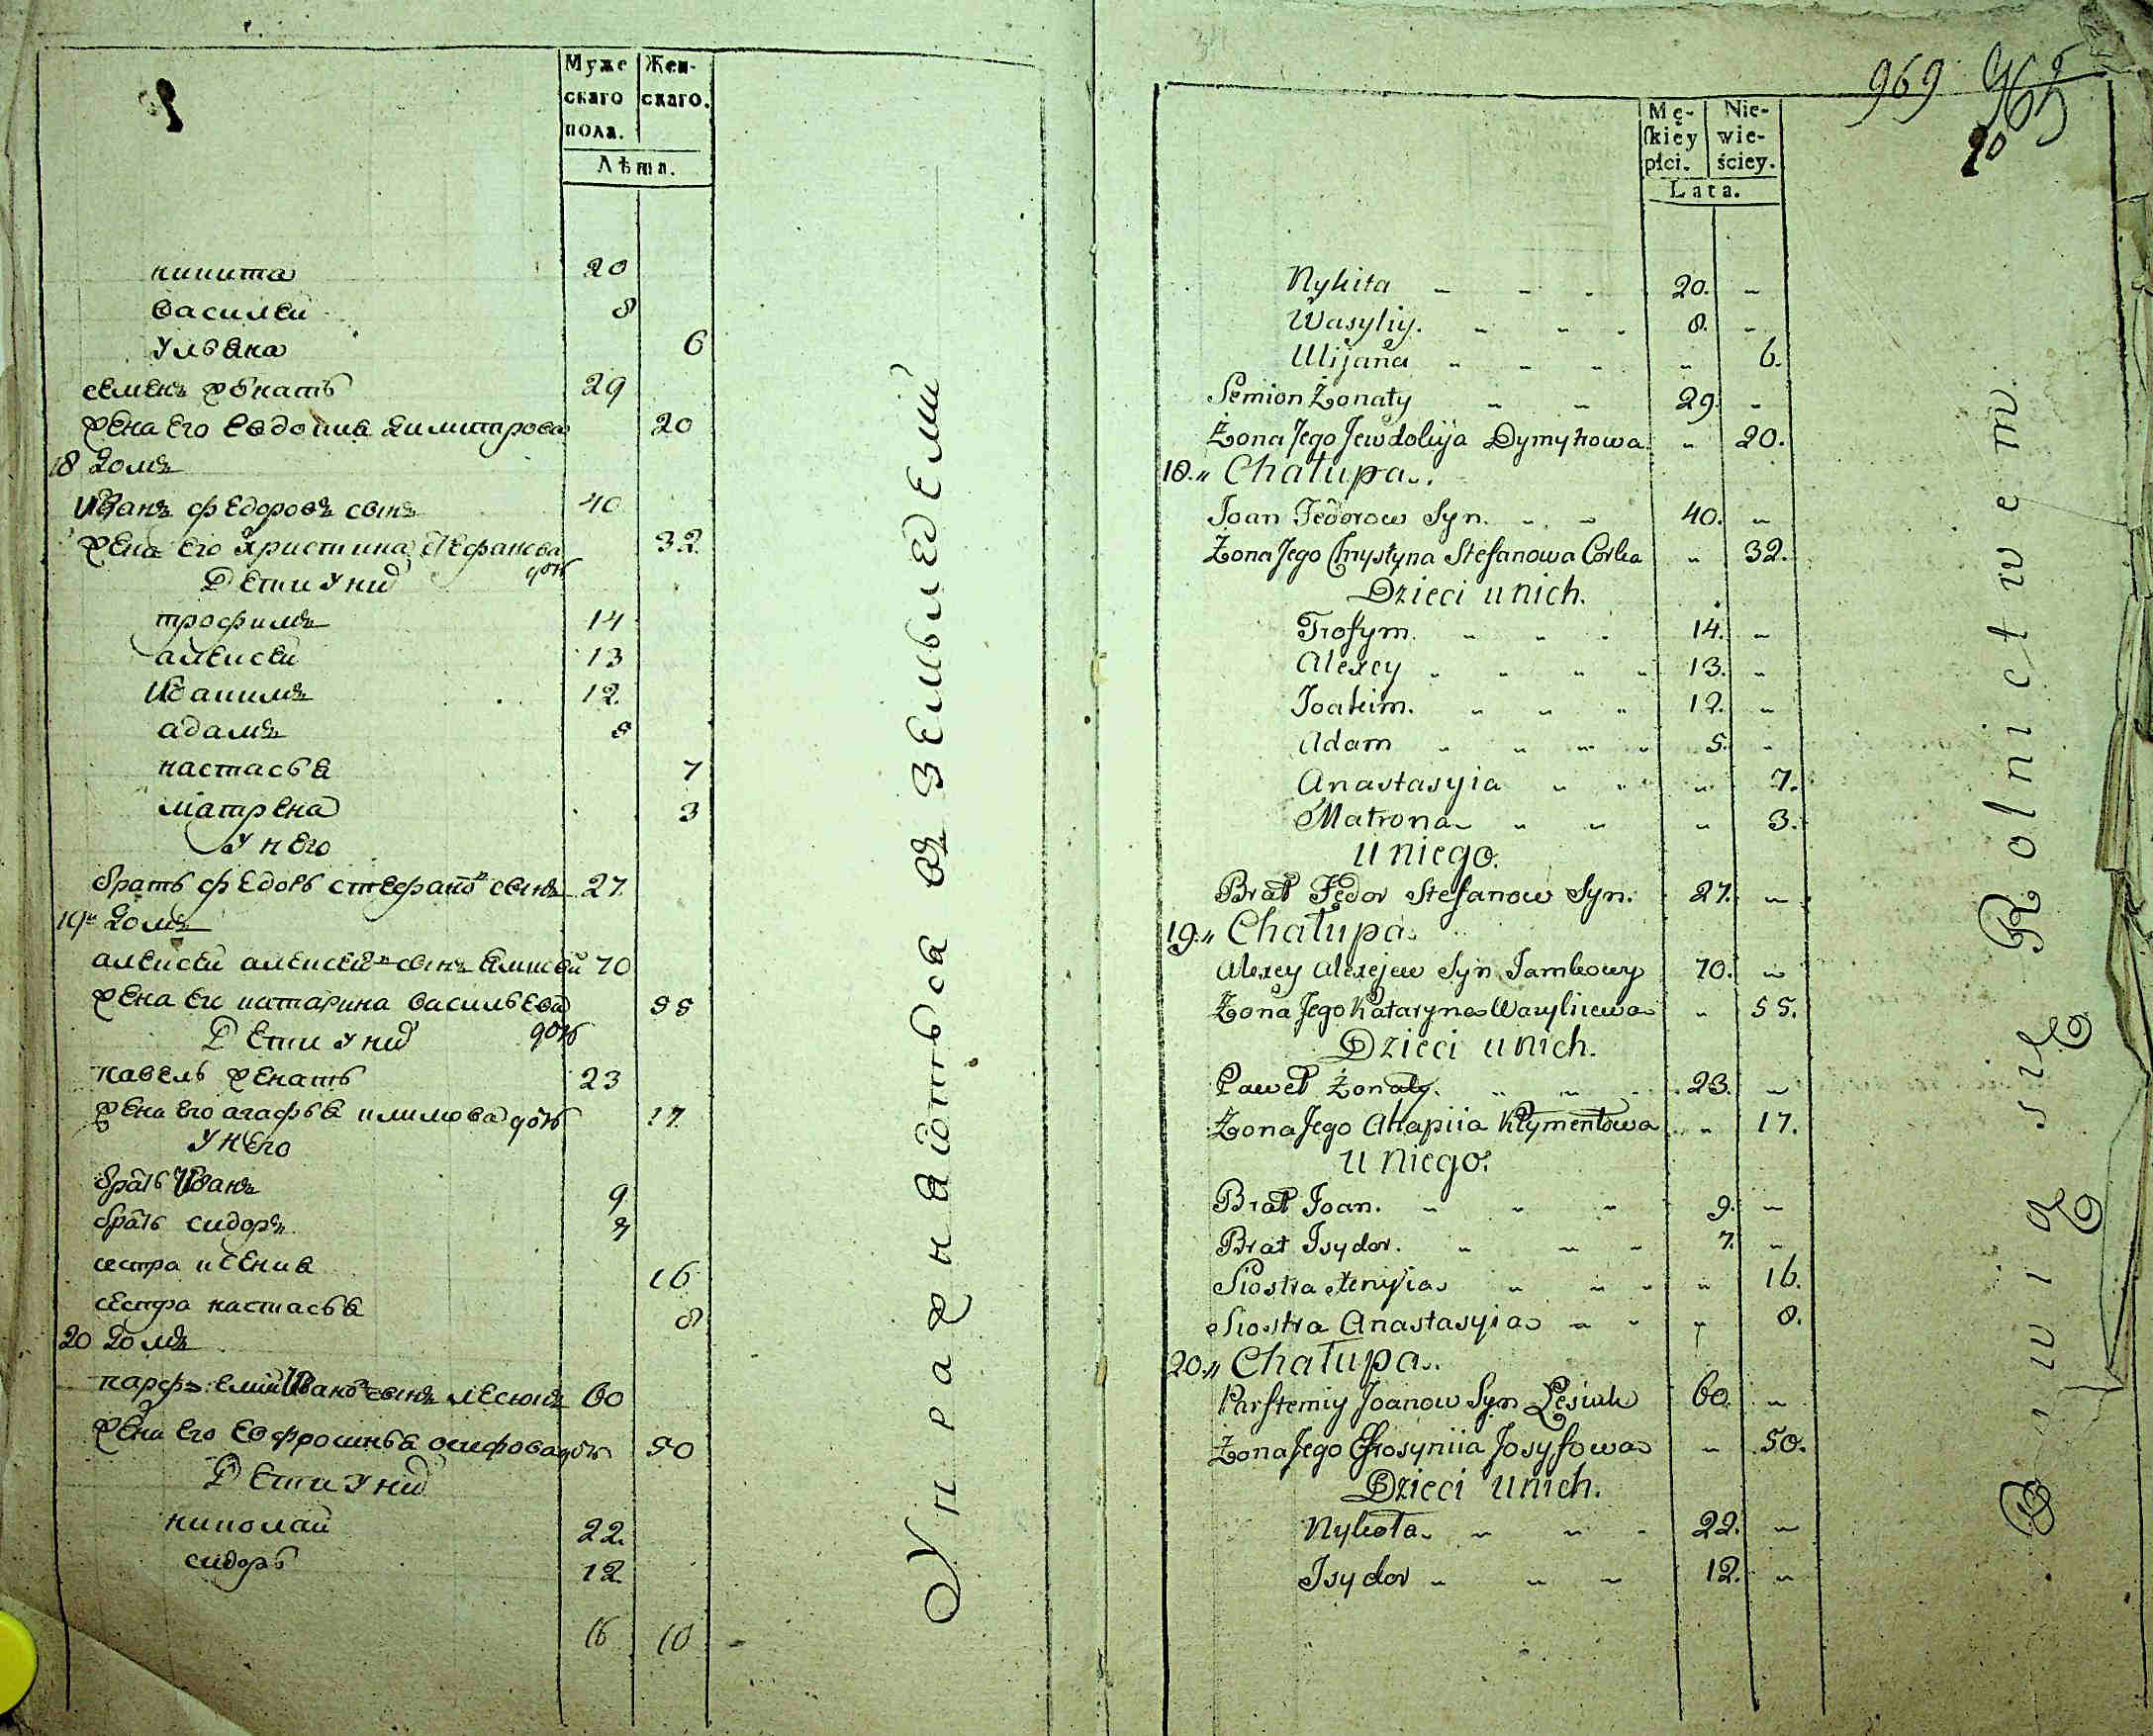 Муже
скаго
пола.
Жен-
скаго.
Лѣта.
никита 20
василей 8
Ульяна 6
семенъ женатъ 29
жена его евдокия димитрова 20
18 домъ
Иванъ федоровъ сынъ 40
жена его христина стефанова дочь 32
Дети у них
трофимъ 14
алексей 13
Иоакимъ 12
адамъ 5
настасья 7
матрена 3
У него
братъ федоръ стефановъ сынъ 27
19 домъ
алексей алексеевъ сынъ 70
жена ег катарина васильева дочь 55
Дети у них
павелъ женатъ 23
жена его агафья климова дочь 17
У него
братъ Иванъ 9
братъ сидоръ 7
сестра ксения 16
сестра настасья 8
20 домъ
парфемий Ивановъ сынъ лесюкъ 60
жена его евфросинья осифова дочь 50
Дети у них
николай 22
сидоръ 12
16 10
Упражняются въ земледелии
969
Mę-
skiey
płci.
Nie-
wie-
ściey.
Lata.
Nykita - - - 20. -
Wasyliy. - - - 8. -
Ulijana - - - - 6.
Semion Żonaty - - 29. -
Żona Jego Jewdokija Dymytrowa - 20.
18.„ Chałupa.
Joan Fedorow Syn. - - 40. -
Żona Jego Chrystyna Stefanowa Corka - 32.
Dzieci u nich.
Trofym. - - - 14. -
Alexey - - - - 13. -
Joakim. - - - 12. -
Adam - - - - 5. -
Anastasyia - - - 7.
Matrona - - - 3.
u niego.
Brat Fedor Stefanow Syn. 27. -
19.„ Chałupa
Alexey Alexejew Syn Jamkowy 70. -
Żona Jego Kataryna Wasyliiewa - 55.
Dzieci u nich.
Paweł Żonaty. - - - 23. -
Żona Jego Ahapiia Kłymentowa - 17.
u niego.
Brat Joan. - - - 9. -
Brat Isydor. - - - 7. -
Siostra Xenyia - - - - 16.
Siostra Anastasyia - - - 8.
20.„ Chałupa.
Parftemiy Joanow Syn Lesiuk 60. -
Żona Jego Efrosyniia Josyfowa - 50.
Dzieci u nich.
Nykoła - - - 22. -
Isydor - - - 12. -
Bawią się Rolnictwem